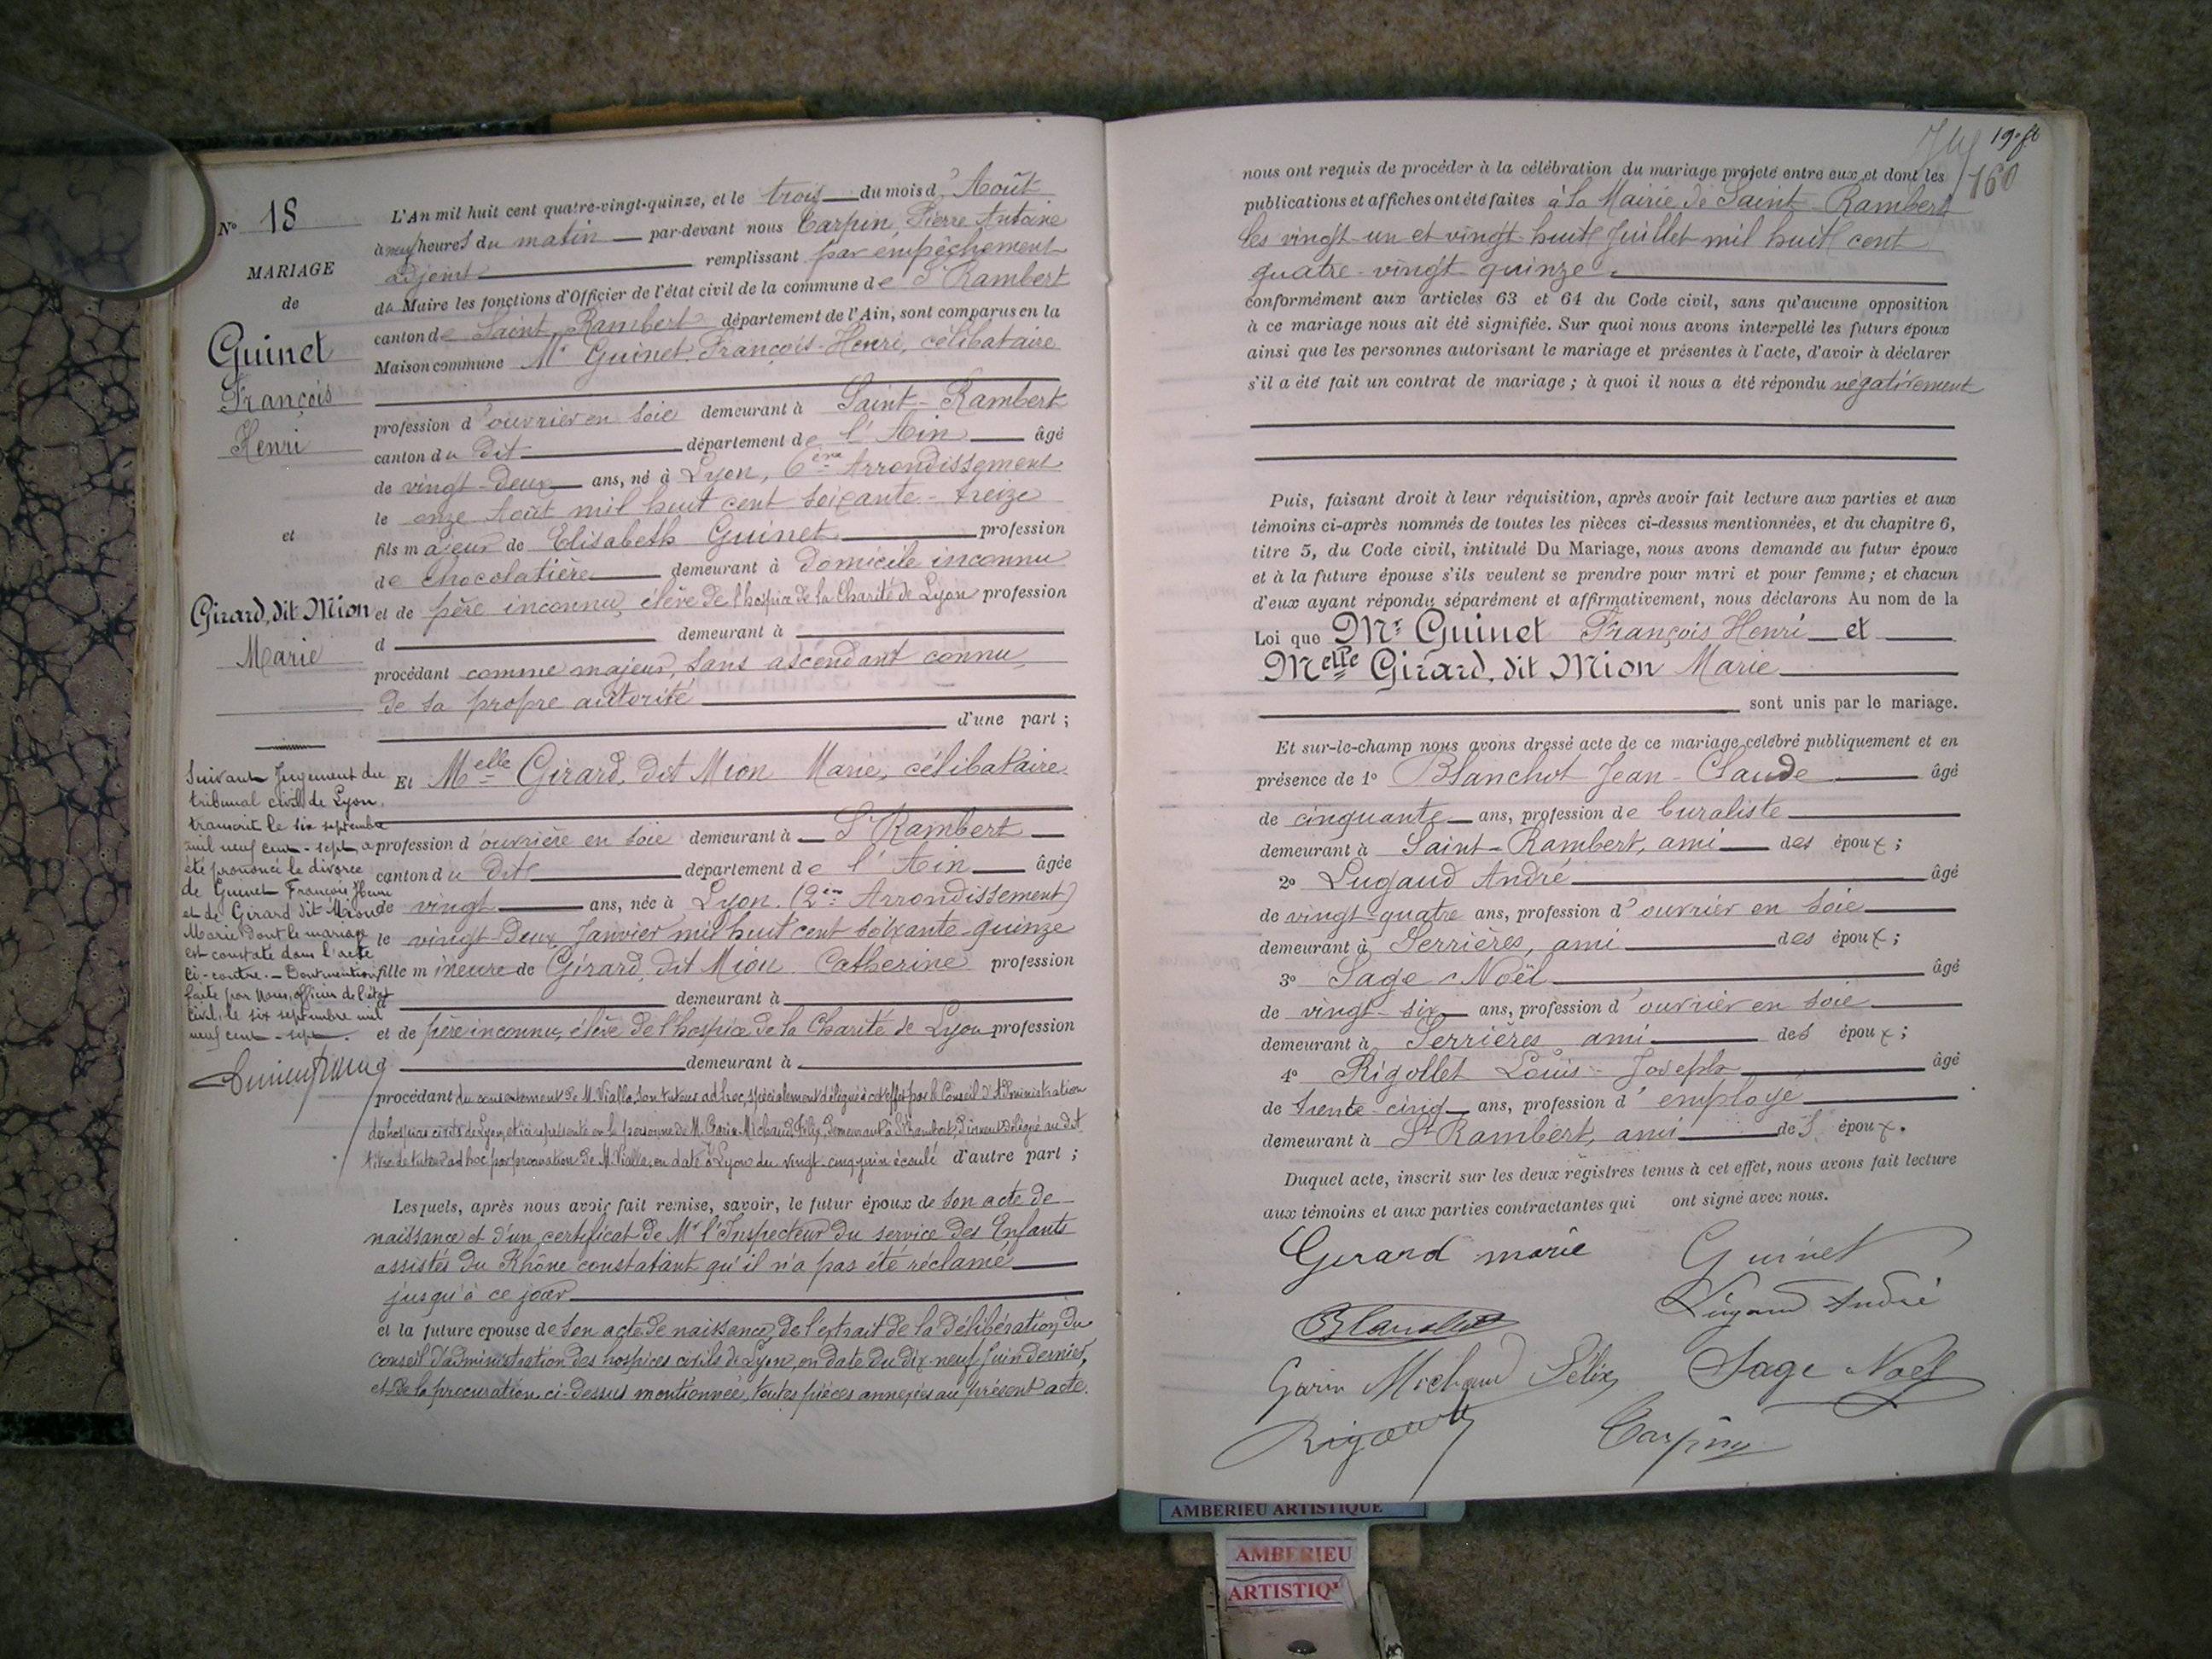 N° 18
MARIAGE
de
Guinet
François
Henri
et
Girard, dit Mion
Marie
Suivant Jugement du
tribunal civil de Lyon,
transcrit le six septembre
mil neuf cent-sept, a
été prononcé le divorce
de Guinet François Henri
et de Girard dit Mion
Marie dont le mariage
est constaté dans l'acte
ci-contre. - Dont mention
faite par Nous, officier de l'état
civil, le six septembre mil
neuf cent-sept.
L'An mil huit cent quatre-vingt-quinze, et le trois du mois d'Août
à neuf heures du matin par-devant nous Carpin, Pierre Antoine
adjoint remplissant par empêchement
du Maire les fonctions d'Officier de l'état civil de la commune de St Rambert
canton de Saint-Rambert département de l'Ain, sont comparus en la
Maison commune Mr Guinet François-Henri, célibataire
profession d'ouvrier en soie demeurant à Saint-Rambert
canton du dit département de l'Ain âgé
de vingt-deux ans, né à Lyon, 6ème Arrondissement
le onze Août mil huit cent soixante-treize
fils majeur de Elisabeth Guinet profession
de chocolatière demeurant à domicile inconnu
et de père inconnu, élève de l'hospice de la Charité de Lyon profession
d demeurant à
procédant comme majeur, sans ascendant connu,
de sa propre autorité
d'une part ;
Et Melle Girard, dit Mion Marie, célibataire
profession d'ouvrière en soie demeurant à St Rambert
canton du dit département de l'Ain âgée
de vingt ans, née à Lyon. (2ème Arrondissement)
le vingt-deux Janvier mil huit cent soixante-quinze
fille mineure de Girard, dit Mion Catherine profession
demeurant à
et de père inconnu, élève de l'hospice de la Charité de Lyon profession
d demeurant à
procédant du consentement de M. Vialla, son tuteur ad hoc, spécialement délégué à cet effet par le Conseil d'Administration
des hospices civils de Lyon, et ici représenté en la personne de M. Garin-Michaud, Félix, demeurant à St Rambert, dûment délégué au dit
titre de tuteur ad hoc par procuration de M. Vialla, en date à Lyon du vingt-cinq juin écoulé d'autre part ;
Lesquels, après nous avoir fait remise, savoir, le futur époux de son acte de
naissance et d'un certificat de Mr l'Inspecteur du service des Enfants
assistés du Rhône constatant qu'il n'a pas été réclamé
jusqu'à ce jour
et la future épouse de son acte de naissance, de l'extrait de la délibération du
conseil d'administration des hospices civils de Lyon, en date du dix-neuf Juin dernier,
et de la procuration ci-dessus mentionnée, toutes pièces annexées au présent acte.
160
nous ont requis de procéder à la célébration du mariage projeté entre eux et dont les
publications et affiches ont été faites à la Mairie de Saint-Rambert
les vingt-un et vingt-huit Juillet mil huit cent
quatre-vingt-quinze.
conformément aux articles 63 et 64 du Code civil, sans qu'aucune opposition
à ce mariage nous ait été signifiée. Sur quoi nous avons interpellé les futurs époux
ainsi que les personnes autorisant le mariage et présentes à l'acte, d'avoir à déclarer
s'il a été fait un contrat de mariage ; à quoi il nous a été répondu négativement
Puis, faisant droit à leur réquisition, après avoir fait lecture aux parties et aux
témoins ci-après nommés de toutes les pièces ci-dessus mentionnées, et du chapitre 6,
titre 5, du Code civil, intitulé Du Mariage, nous avons demandé au futur époux
et à la future épouse s'ils veulent se prendre pour mari et pour femme ; et chacun
d'eux ayant répondu séparément et affirmativement, nous déclarons Au nom de la
Loi que Mr Guinet François Henri et
Melle Girard, dit Mion Marie
sont unis par le mariage.
Et sur-le-champ nous avons dressé acte de ce mariage célébré publiquement et en
présence de 1° Blanchot Jean-Claude âgé
de cinquante ans, profession de buraliste
demeurant à Saint-Rambert, ami des époux ;
2° Lugaud André âgé
de vingt-quatre ans, profession d'ouvrier en soie
demeurant à Serrières, ami des époux ;
3° Sage Noël âgé
de vingt-six ans, profession d'ouvrier en soie
demeurant à Serrières ami des époux ;
4° Rigollet Louis-Joseph âgé
de trente-cinq ans, profession d'employé
demeurant à St Rambert, ami des époux.
Duquel acte, inscrit sur les deux registres tenus à cet effet, nous avons fait lecture
aux témoins et aux parties contractantes qui ont signé avec nous.
Gerard marie Guinet
Lugaud André
Blanchot
Garin Michaud Félix Sage Noël
Carpin
AMBERIEU ARTISTIQUE
AMBERIEU
ARTISTIQ